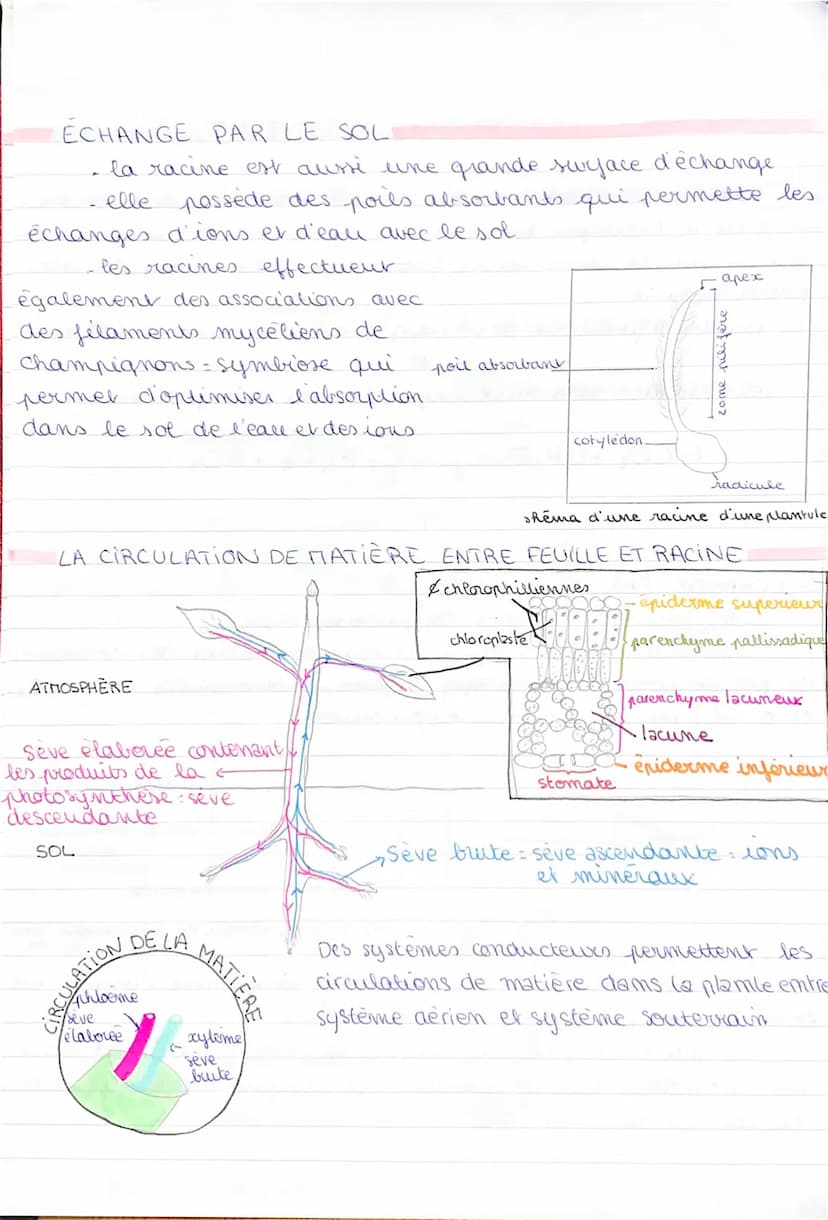 ÉCHANGE PAR LE SOL
- la racine est aussi une grande surface d'échange
- elle possède des poils absorbants qui permette les
échanges d'ions et d'eau avec le sol
- les racines effectuent
également des associations avec
des filaments mycéliens de
champignons = symbiose qui
permet d'optimiser l'absorption
dans le sol de l'eau et des ions
apex
zone pilifère
poil absorbant
cotylédon
radicule
shéma d'une racine d'une plantule
LA CIRCULATION DE MATIÈRE ENTRE FEUILLE ET RACINE
¢ chlorophilliennes
chloroplaste
épiderme supérieur
parenchyme pallissadique
parenchyme lacuneux
lacune
épiderme inférieur
stomate
ATMOSPHÈRE
Sève élaborée contenant
les produits de la
photosynthèse : sève
descendante
SOL
Sève brute = sève ascendante = ions
et minéraux
CIRCULATION DE LA MATIÈRE
phloème
sève
élaborée
xylème
sève
brute
Des systèmes conducteurs permettent les
circulations de matière dans la plante entre
système aérien et système souterrain